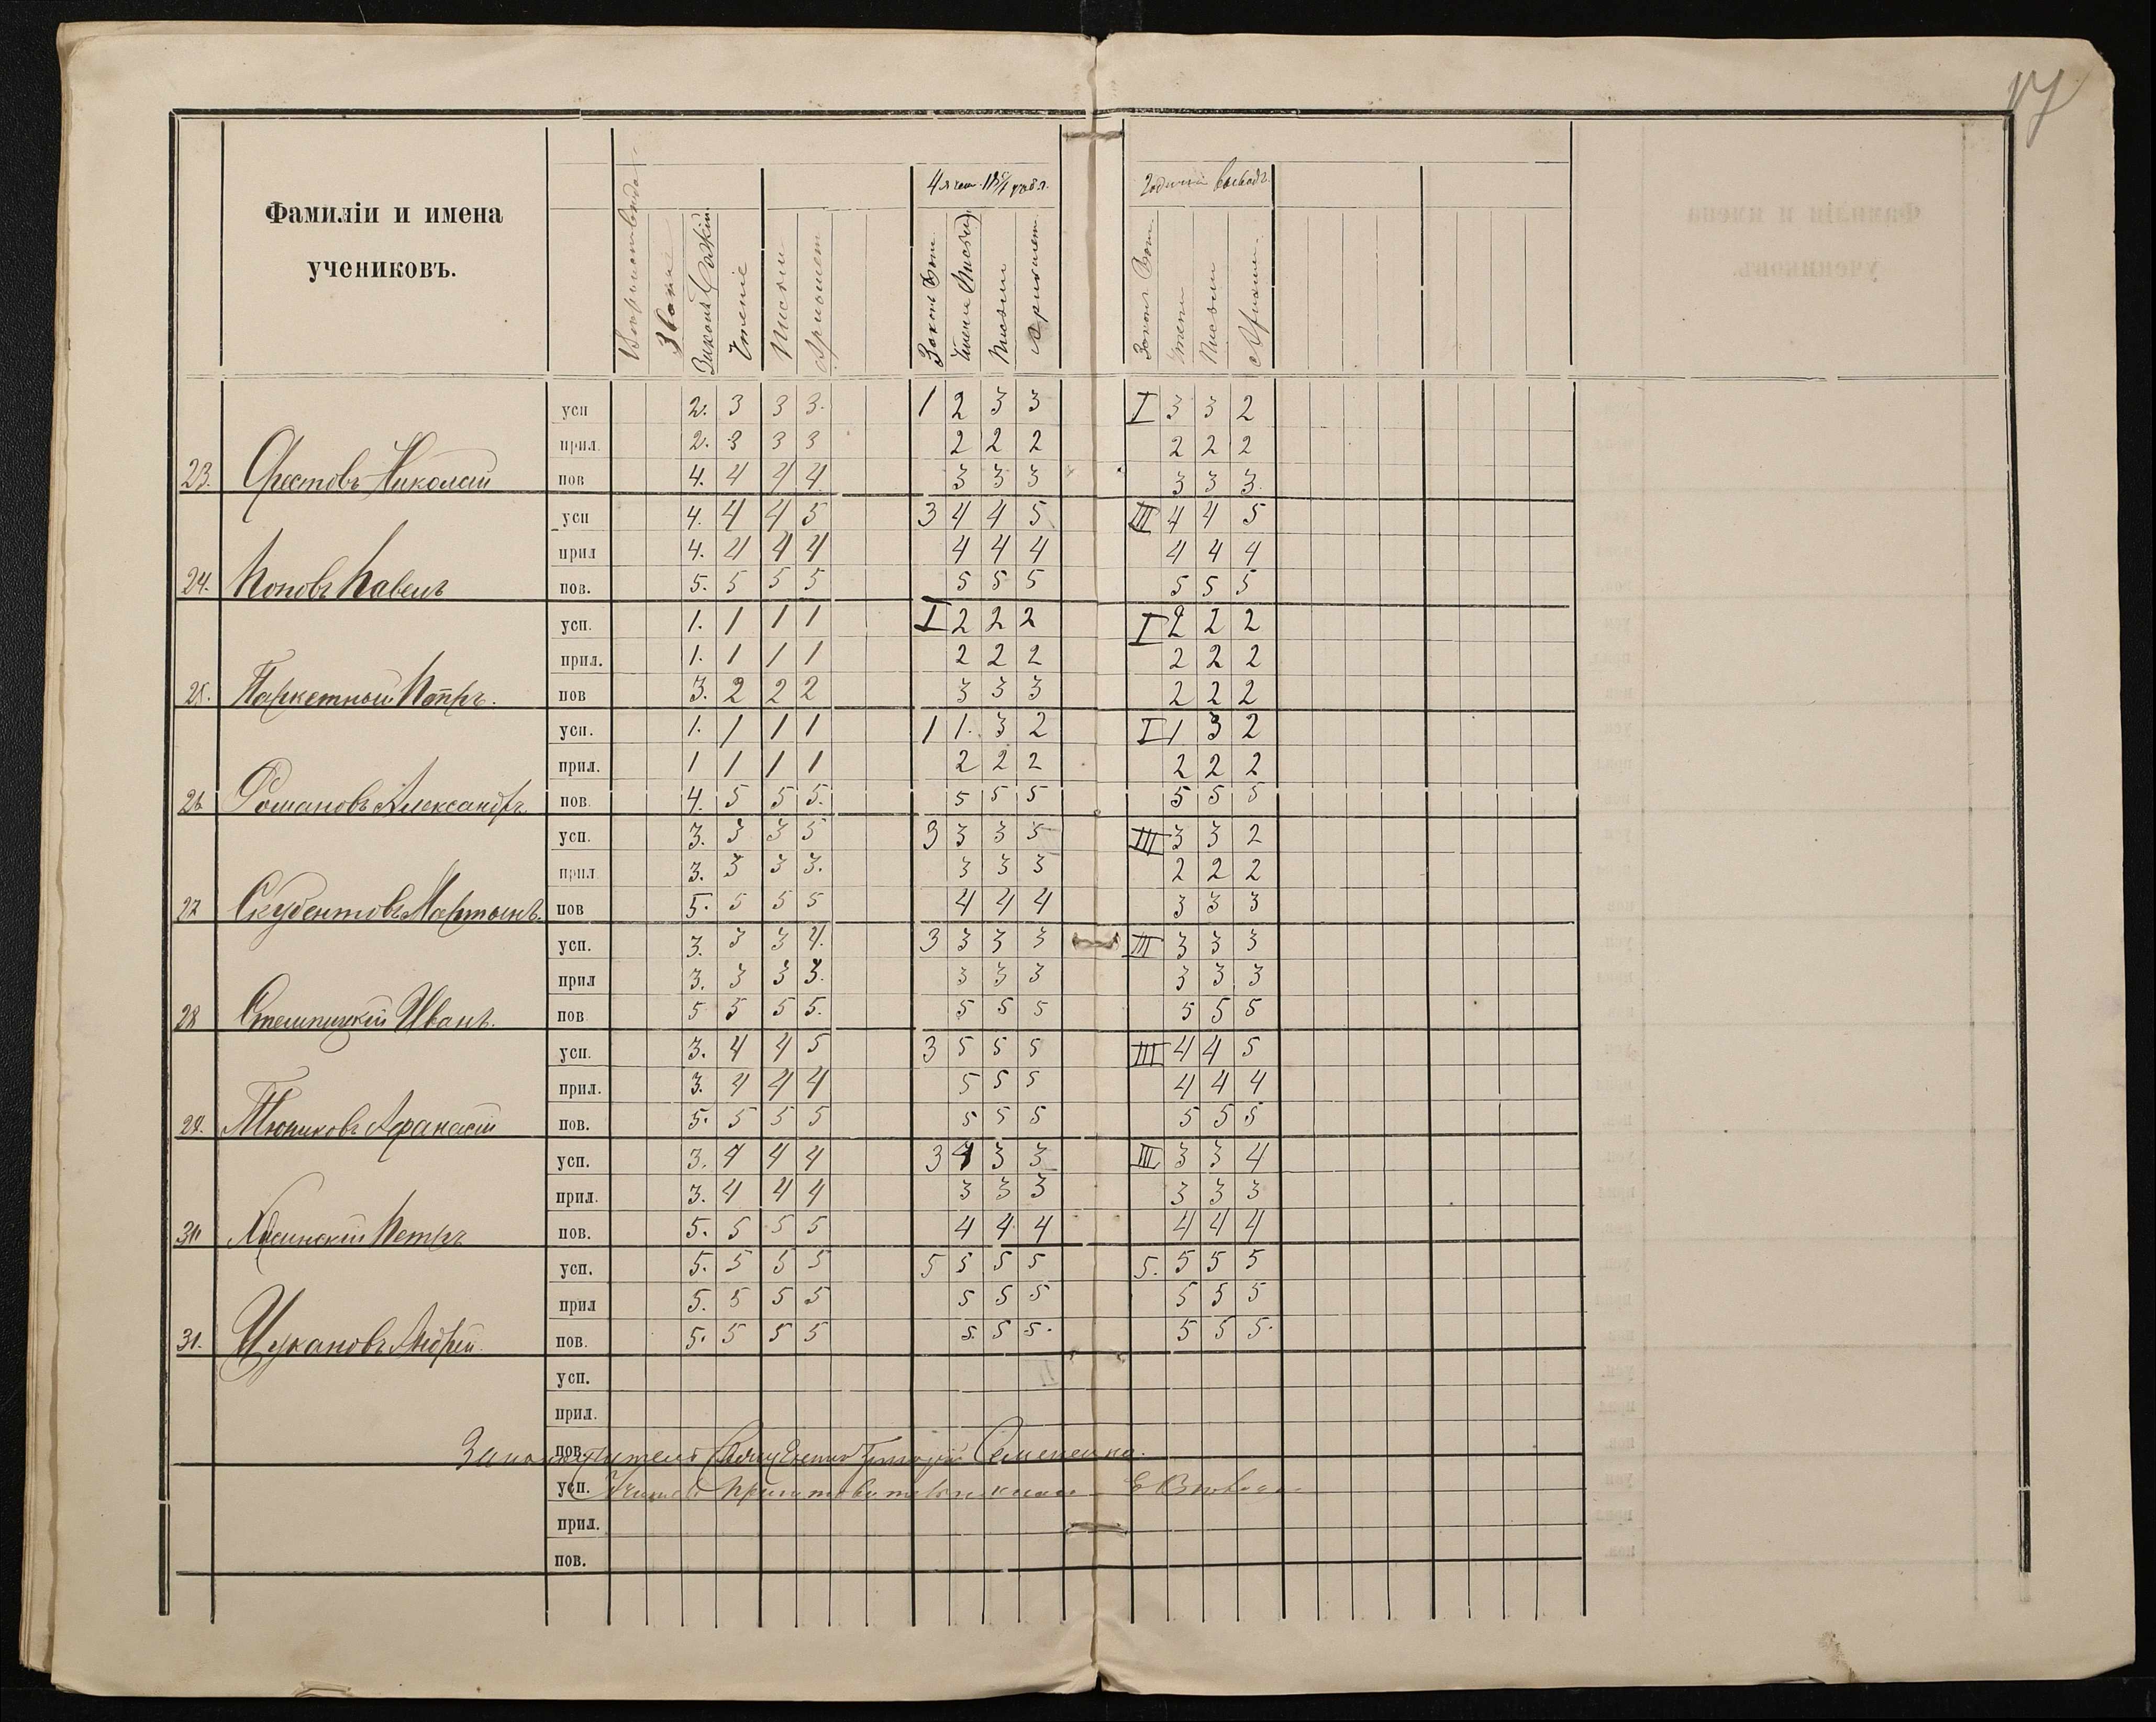 17
Фамиліи и имена
учениковъ.
Званіе
Законъ Божій
Чтеніе
Письмо
Ариѳмет
Законъ Бож.
Письм
Ариѳмет
Годичный выводъ
Законъ Бож
Чтен
Письм
Ариѳм
усп 2. 3 3 3. 1 2 3 3 I 3 3 2
прил. 2. 3 3 3 2 2 2 2 2 2
23. Орестовъ Николай пов 4. 4 4 4 3 3 3 3 3 3.
усп 4. 4 4 5 3 4 4 5 III 4 4 5
прил 4. 4 4 4 4 4 4 4 4 4
24. Поповъ Павелъ пов. 5. 5 5 5 5 5 5 5 5 5
усп. 1. 1 1 1 I 2 2 2 I 2 2 2
прил. 1. 1 1 1 2 2 2 2 2 2
25. Паркетный Петръ. пов 3. 2 2 2 3 3 3 2 2 2
усп. 1. 1 1 1 1 1. 3 2 I 1 3 2
прил. 1 1 1 1 2 2 2 2 2 2
26 Романовъ Александръ пов. 4. 5 5 5. 5 5 5 5 5 5
усп. 3. 3 3 5 3 3 3 5 III 3 3 2
прил 3. 3 3 3. 3 3 3 2 2 2
27 Мартынъ. пов 5. 5 5 5 4 4 4 3 3 3
усп. 3. 3 3 4. 3 3 3 3 III 3 3 3
прил 3. 3 3 3. 3 3 3 3 3 3
28 Иванъ. пов 5 5 5 5. 5 5 5 5 5 5
усп. 3. 4 4 5 3 5 5 5 III 4 4 5
прил. 3. 4 4 4 5 5 5 4 4 4
29. Аѳанасій пов. 5. 5 5 5 5 5 5 5 5 5
усп. 3. 4 4 4 3 4 3 3 III 3 3 4
прил. 3. 4 4 4 3 3 3 3 3 3
30 Петръ пов. 5. 5 5 5 4 4 4 4 4 4
усп. 5. 5 5 5 5 5 5 5 5. 5 5 5
прил 5. 5 5 5 5 5 5 5 5 5
31. Цукановъ Андрей. пов. 5. 5 5 5 5. 5 5. 5 5 5.
усп.
прил.
пов. Законоучитель Священникъ Григорій Семененко.
усп. Учитель приготовительн класса Е
прил.
пов.